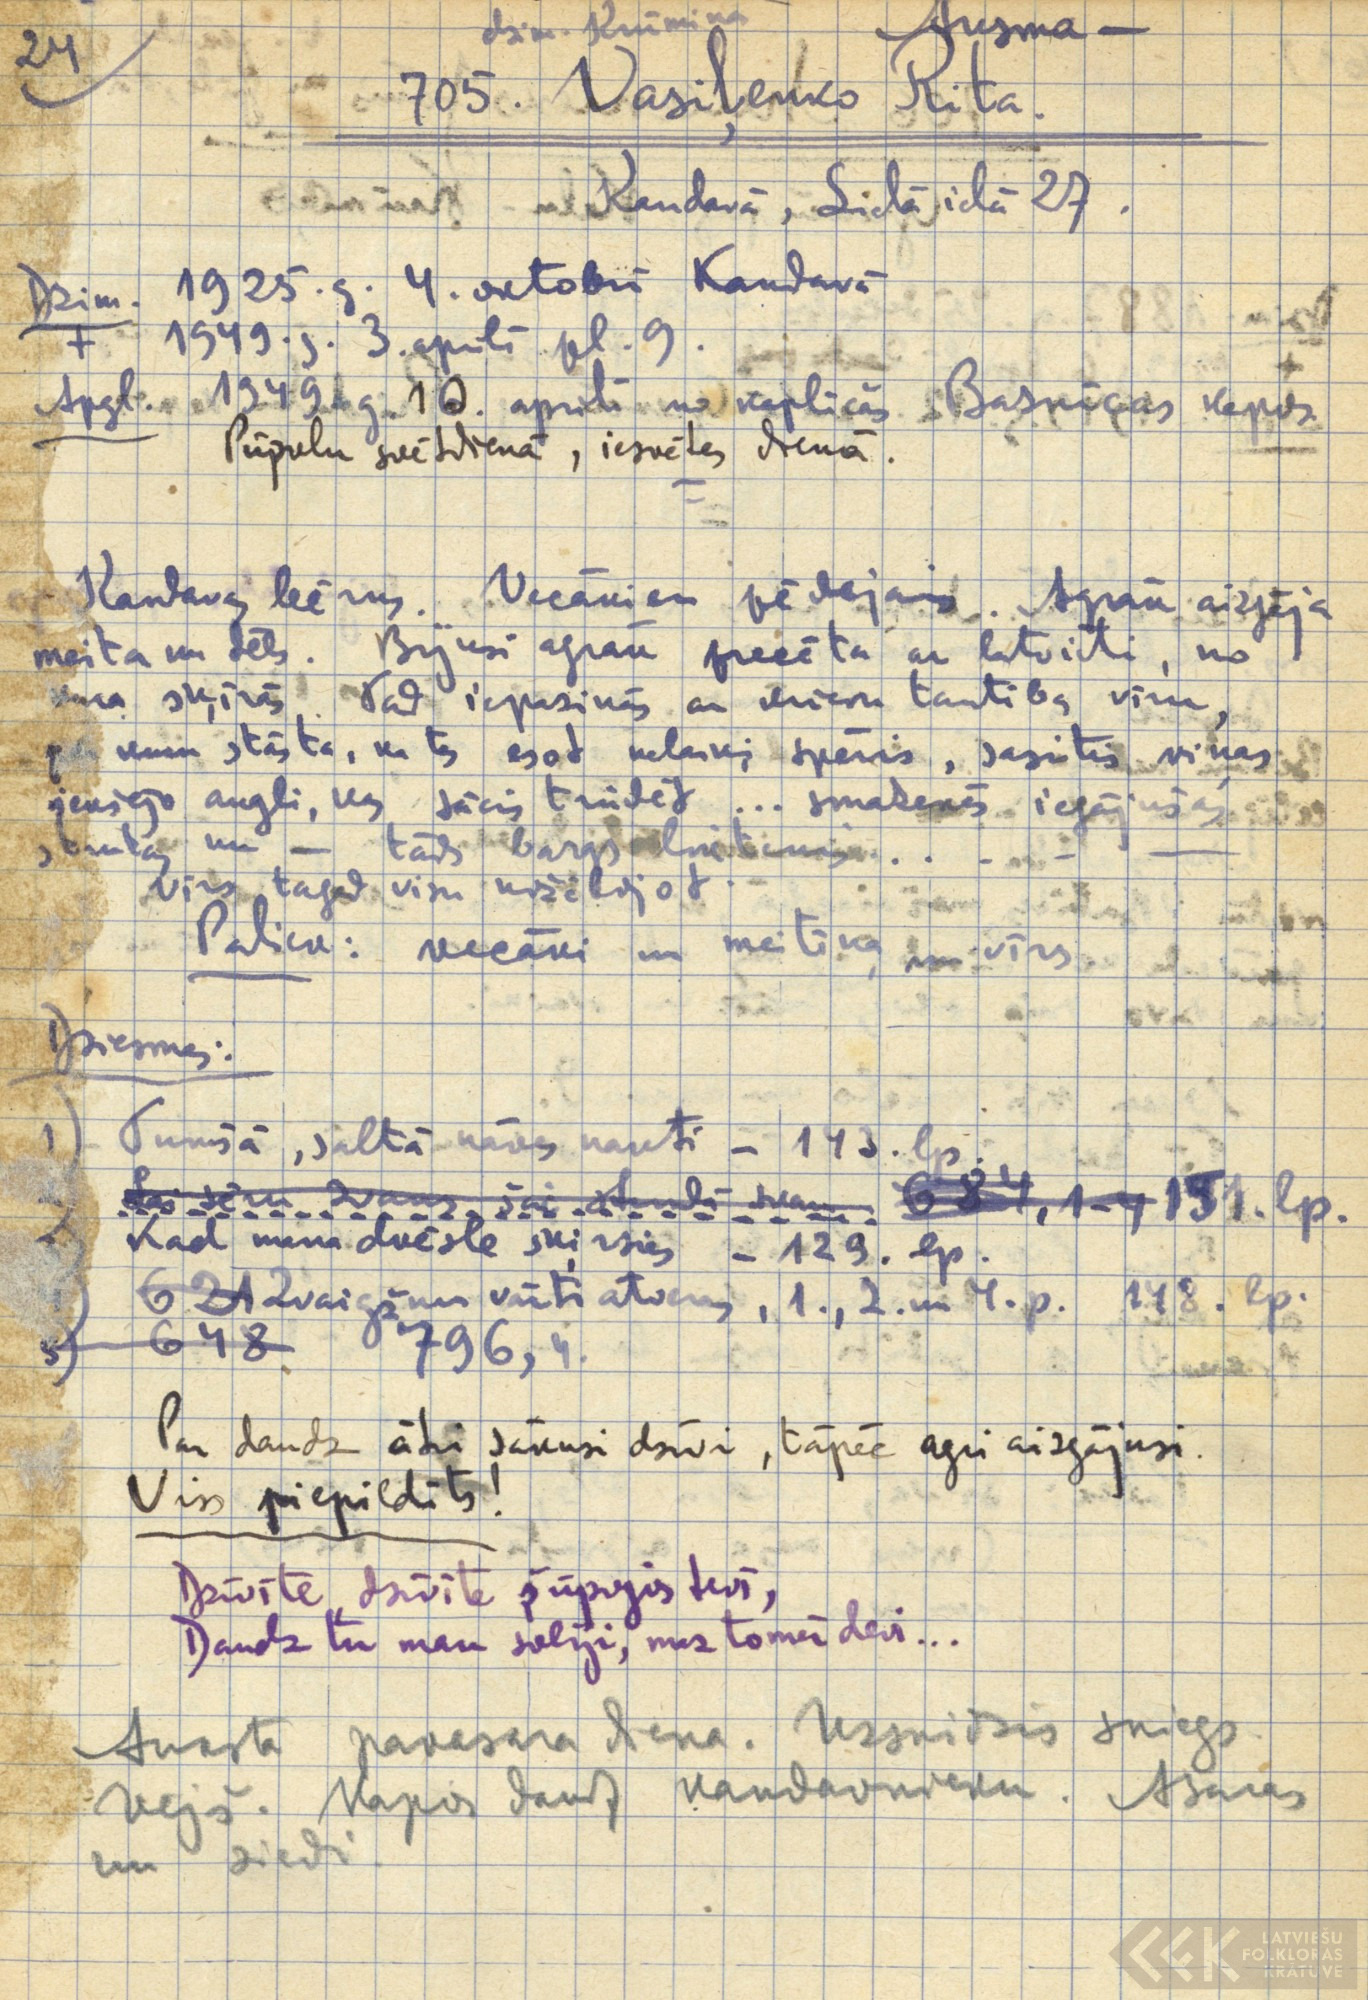 24
dzim. Krūmiņa
Ausma —
705. Vasiļenko Rita.
Kandavā, Lielā ielā 27.
Dzim. 1925. g. 4. oktobrī Kandavā
+ 1949. g. 3. aprīlī pl. 9.
Apgl. 1949. g. 10. aprīlī no kapličas Baznīcas kapos
Pūpolu svētdienā, iesvētes dienā.
Kandavas bērns. Vecākiem pēdējais. Agrāk aizgāja
meita un dēls. Bijusi agrāk precēta ar latvieti, no
kura šķīrās. Tad iepazinās ar krievu tautības vīru,
par kuru stāsta, ka tas esot spēris, sasitis viņas
augli, kas sācis trūdēt ... smadzenēs iegājušas
strutas un — tāds bargs liktenis . . . .
Vīrs tagad visu nožēlojot.
Paliek: vecāki un meitiņa un vīrs.
Dziesmas:
1) Tumšā, saltā nāves naktī – 143. lp.
Lai sēru zvans 684, 1-4 151. lp.
2) Kad mana dvēsle šķirsies – 129. lp.
621 Zvaigžņu vārti atveras, 1., 2. un 4. p. 148. lp.
5) 648 796, 4.
Par daudz ātri sākusi dzīvi, tāpēc agri aizgājusi.
Viss piepildīts!
Dzīvīte, dzīvīte šūpojos tevī,
Daudz tu man solīji, maz tomēr devi...
Auksta pavasara diena. Uzsnidzis sniegs.
Vējš. Kapos daudz kandavnieku. Asaras
un ziedi.
LATVIEŠU
FOLKLORAS
KRĀTUVE